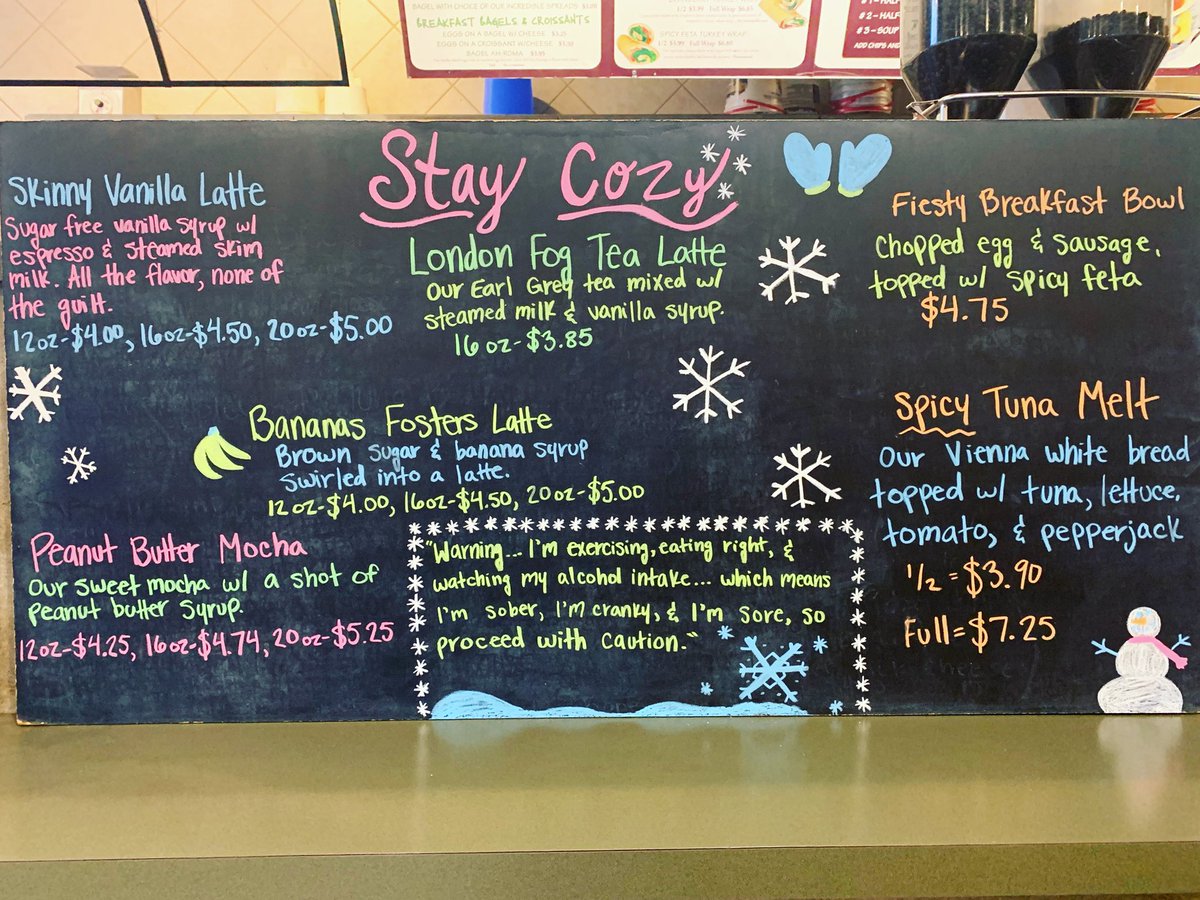 BAGEL WITH CHOICE OF OUR INCREDIBLE SPREADS
BREAKFAST BAGELS & CROISSANTS
EGGS ON A BAGEL W/ CHEESE $5.25
EGGS ON A CROISSANT W/CHEESE
BAGEL AH-ROMA
1/2 $3.99 Full Wrap $6.85
SPICY FETA TURKEY WRAP
1/2 $3.99 Full Wrap $6.80
# 1 - HALF
# 2 - HALF
# 3 - SOUP
ADD CHIPS AND
Stay Cozy
Skinny Vanilla Latte
Sugar free vanilla syrup w/
espresso & steamed skim
milk. All the flavor, none of
the guilt.
12oz-$4.00, 16oz-$4.50, 20oz-$5.00
London Fog Tea Latte
Our Earl Grey tea mixed w/
steamed milk & vanilla syrup.
16 oz-$3.85
Bananas Fosters Latte
Brown Sugar & banana syrup
swirled into a latte.
12oz-$4.00, 16oz-$4.50, 20oz-$5.00
Peanut Butter Mocha
Our sweet mocha w/ a shot of
Peanut butter syrup.
12oz-$4.25, 16oz-$4.74, 20oz-$5.25
"Warning... I'm exercising, eating right, &
watching my alcohol intake... which means
I'm sober, I'm cranky, & I'm sore, so
proceed with caution."
Fiesty Breakfast Bowl
Chopped egg & sausage,
topped w/ spicy feta
$4.75
Spicy Tuna Melt
Our Vienna white bread
topped w/ tuna, lettuce,
tomato, & pepperjack
1/2 = $3.90
Full = $7.25